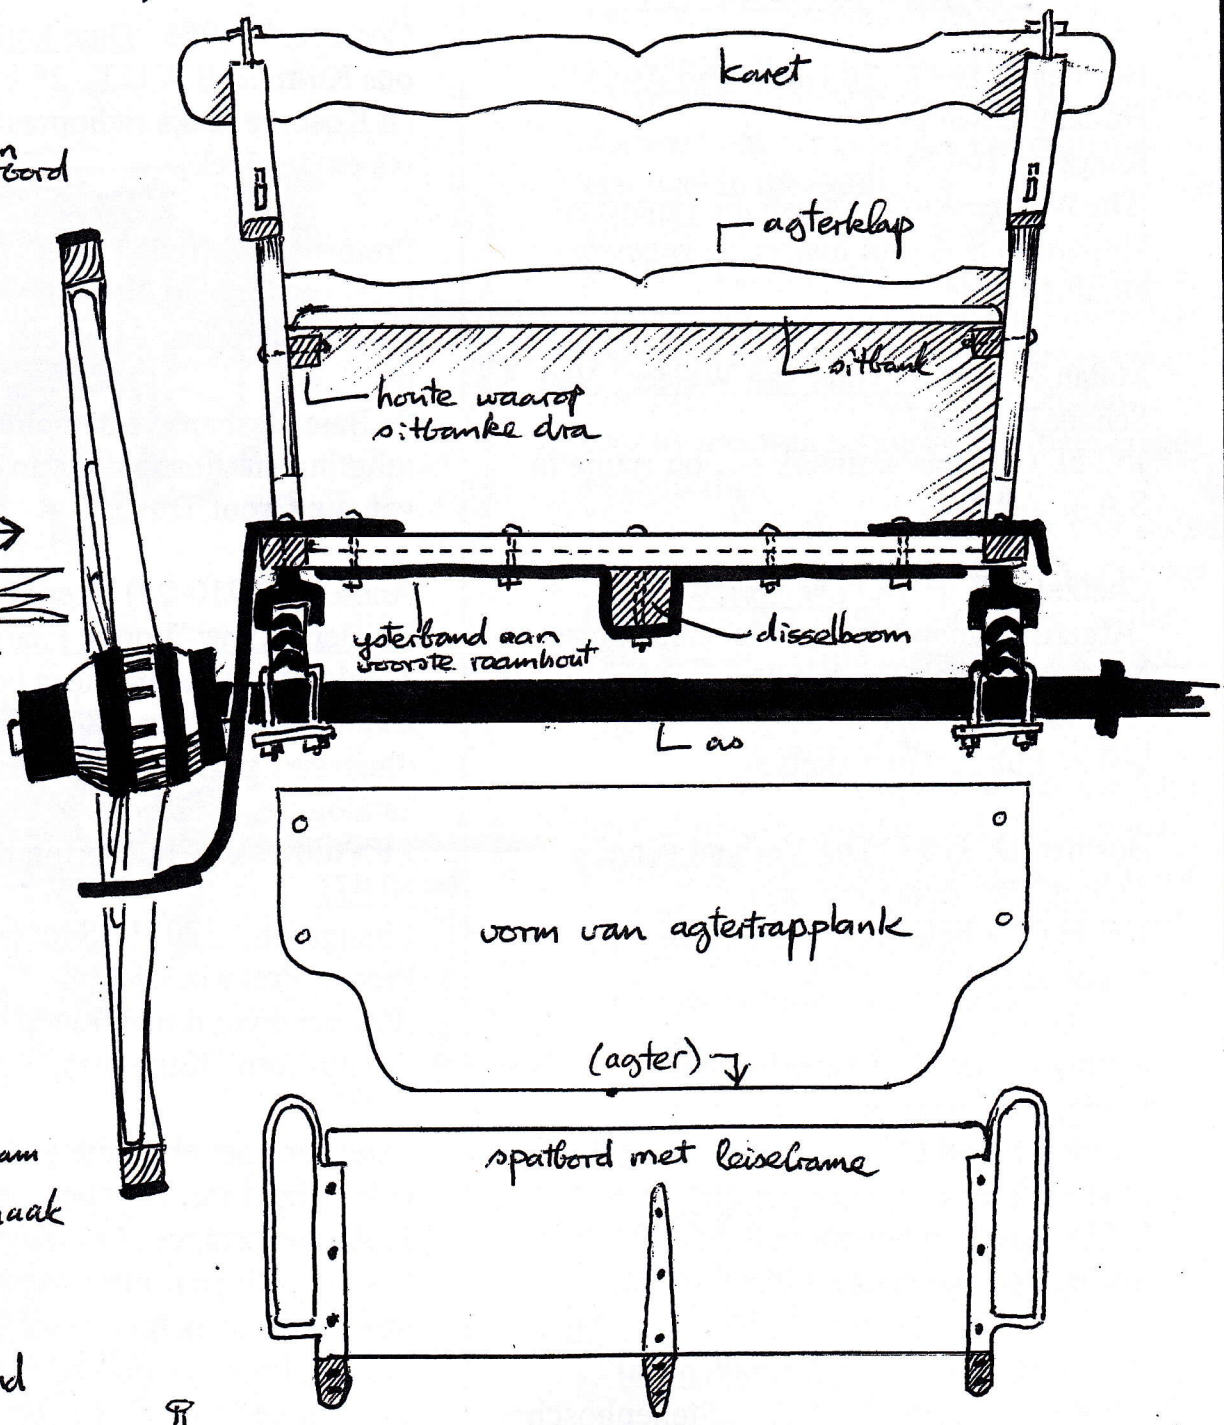 karet
agterklap
sitbank
houte waarop
sitbanke dra
ysterband aan
voorste raamhout
disselboom
as
vorm van agtertrapplank
(agter)
spatbord met leiselrame